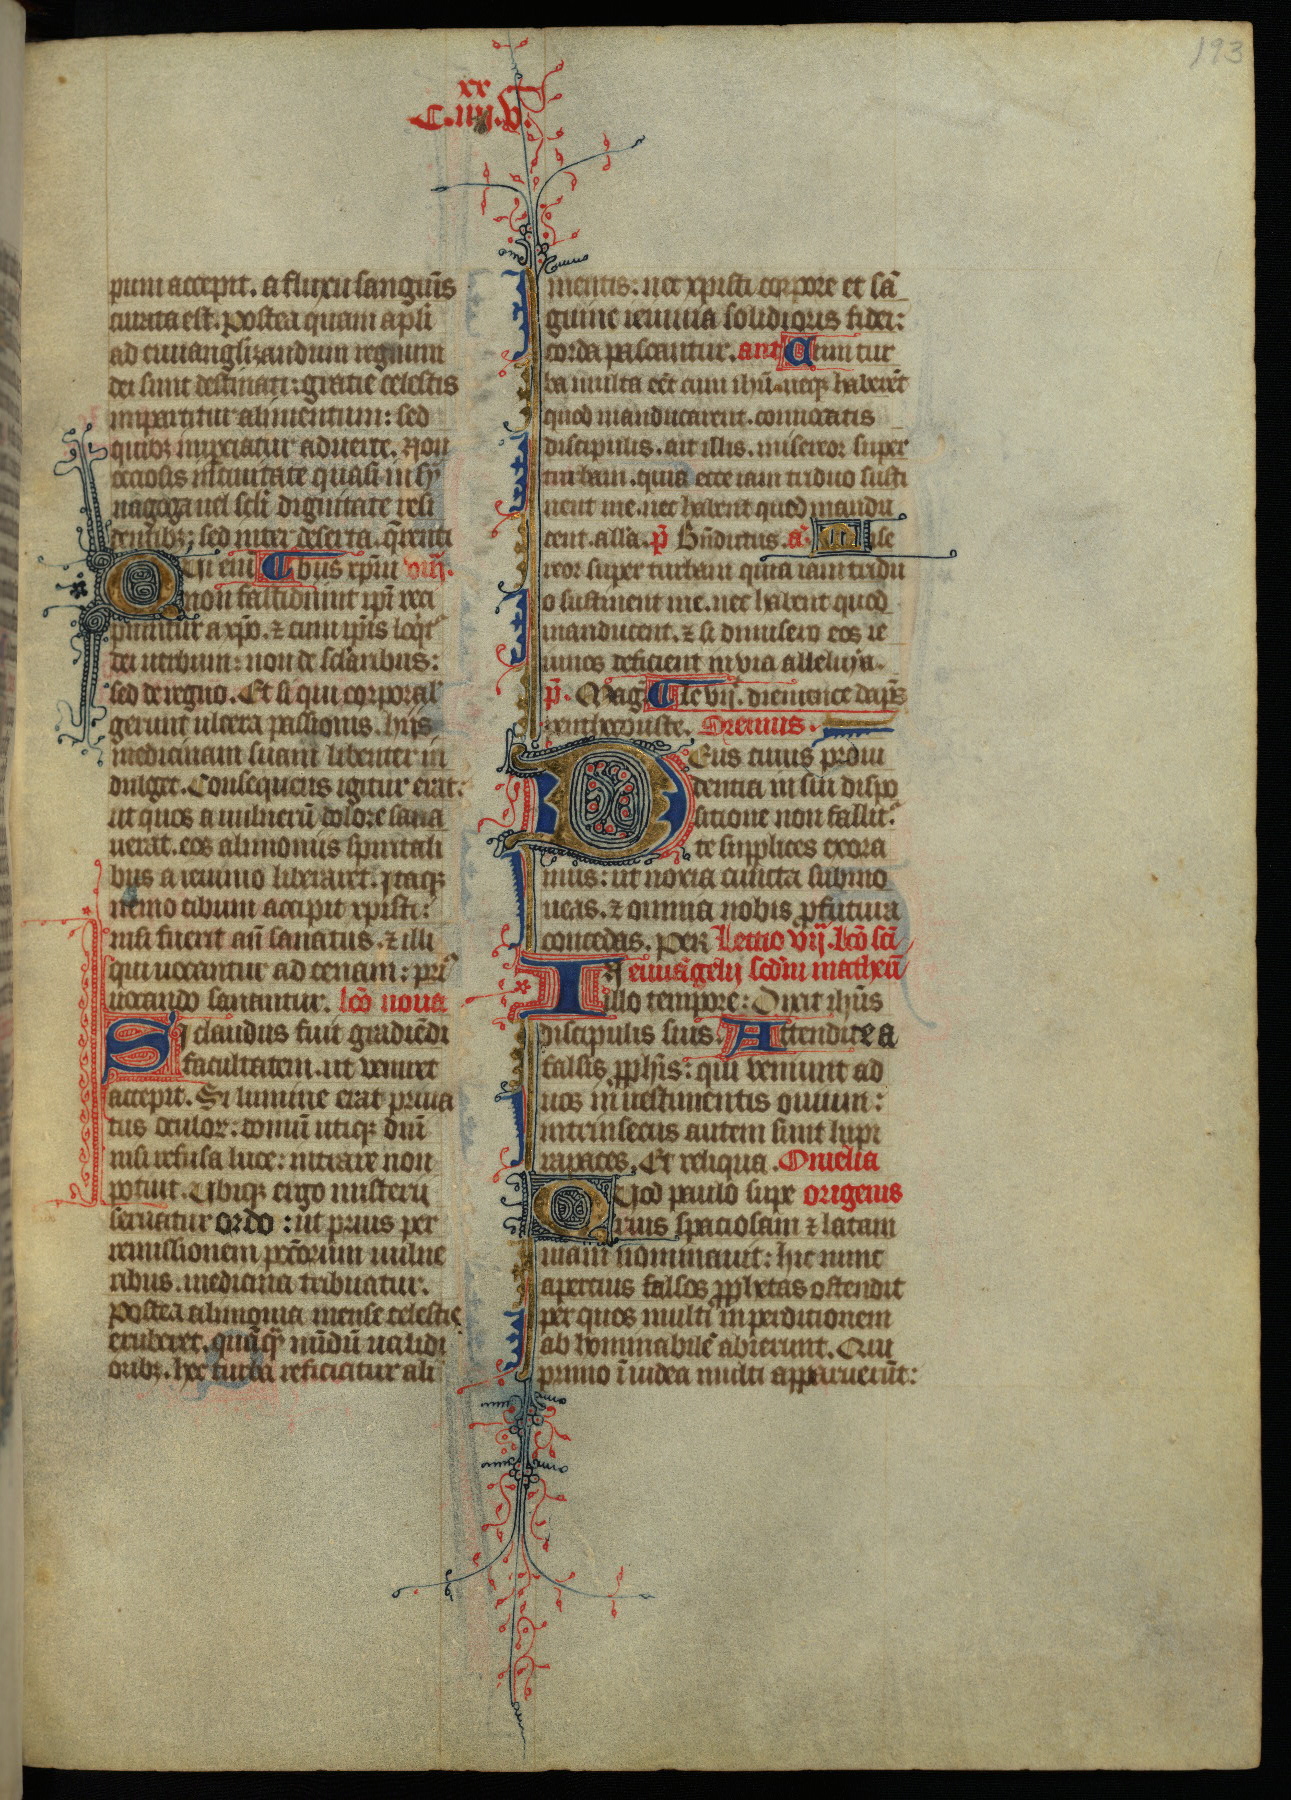 193
xx
C.iiij.v.
pium accepit. a fluxu sanguīs
curata est. Postea quam apl̄i
ad euuanglizandum regnum
dei sunt destinati: gratie celestis
impartitur alimentum: sed
quibꝫ impciatur aduerte. Non
ociosis nec in ciuitate quasi in sy
nagoga uel scl̄i dignitate resi
dentibꝫ; sed inter deserta. q̄renti
Qui eni Cbus xp̄m viij.
non fastidiunt ip̄i reci
piuntur a xp̄o. ⁊ cum ip̄is loq̄t᷑
dei uerbum: non de sclaribus:
sed de regno. Et si qui corporal᷑
gerunt ulcera passionis. hijs
medicinam suam libenter in
dulget. Consequens igitur erat:
ut quos a uulnerū dolore sana
uerat. eos alimonijs spiritali
bus a ieiunio liberaret. Itaqꝫ
nemo cibum accipit xpisti:
nisi fuerit an̄ sanatus. ⁊ illi
qui uocantur ad cenam: pri᷑
uocando sanantur. lcō nona
Si claudus fuit gradiēdi
facultatem. ut veniret
accepit. Si lumine erat priua
tus oculoꝝ: domū utiqꝫ dn̄i
nisi refusa luce: intrare non
potuit. Ubiqꝫ ergo misterij
seruatur ordo: ut prius per
remissionem peccōrum uulne
ribus. medicina tribuatur.
Postea alimonia mense celestis
exuberet. quāqꝫ nōdū ualidi
oribꝫ. hec turba reficitur ali
mentis: nec xpisti corpore et sā
guine ieiunia solidioris fidei:
corda pascantur. ant Cum tur
ba multa eēt cum ihū. necqꝫ haberēt
quod manducarent. conuocatis
discipulis. ait illis. misereor super
turbam. quia ecce iam triduo susti
nent me. nec habent quod mandu
cent. all̄a. p̄ Bn̄dictus. ā Mise
reor super turbam quia iam tridu
o sustinent me. nec habent quod
manducent. ⁊ si dimisero eos ie
iunos deficient in via alleluya.
p̄. Mag
Oremus.
Deus cuius proui
dentia in sui dispo
sitione non fallit᷑:
te supplices exora
mus: ut noxia cuncta submo
ueas. ⁊ omnia nobis ꝓfutura
concedas. Per Lectio vij. lcō scī
In euuāgelij scd̄m matheū
illo tempore: Dixit ihūs
discipulis suis. Attendite a
falsis ꝓph̄is: qui veniunt ad
uos in uestimentis ouium:
intrinsecus autem sunt lupi
rapaces. Et reliqua. Omelia
Quod paulo supe origenis
rius spaciosam ⁊ latam
uiam nominauit: hic nunc
apertius falsos ꝓphetas ostendit
per quos multi in perditionem
ab hominabilē abierunt. Qui
primo ī iudea multi apparuerūt: